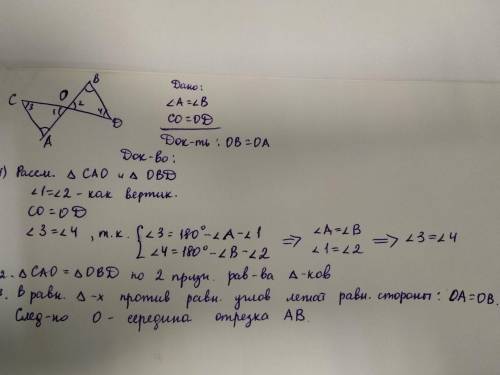 B
O
C
3
1
2
4
D
A
Дано:
∠A=∠B
CO=OD
Док-ть: OB=OA
Док-во:
1) Рассм. △ CAO и △ OBD
∠1=∠2 - как вертик.
CO=OD
∠3=∠4, т.к. { ∠3=180°-∠A-∠1 ∠4=180°-∠B-∠2 ⇒ ∠A=∠B ∠1=∠2 ⇒ ∠3=∠4
2. △CAO=△OBD по 2 призн. рав-ва △-ков
3. В равн. △-х против равн. углов лежат равн. стороны: OA=OB.
След-но O - середина отрезка AB.